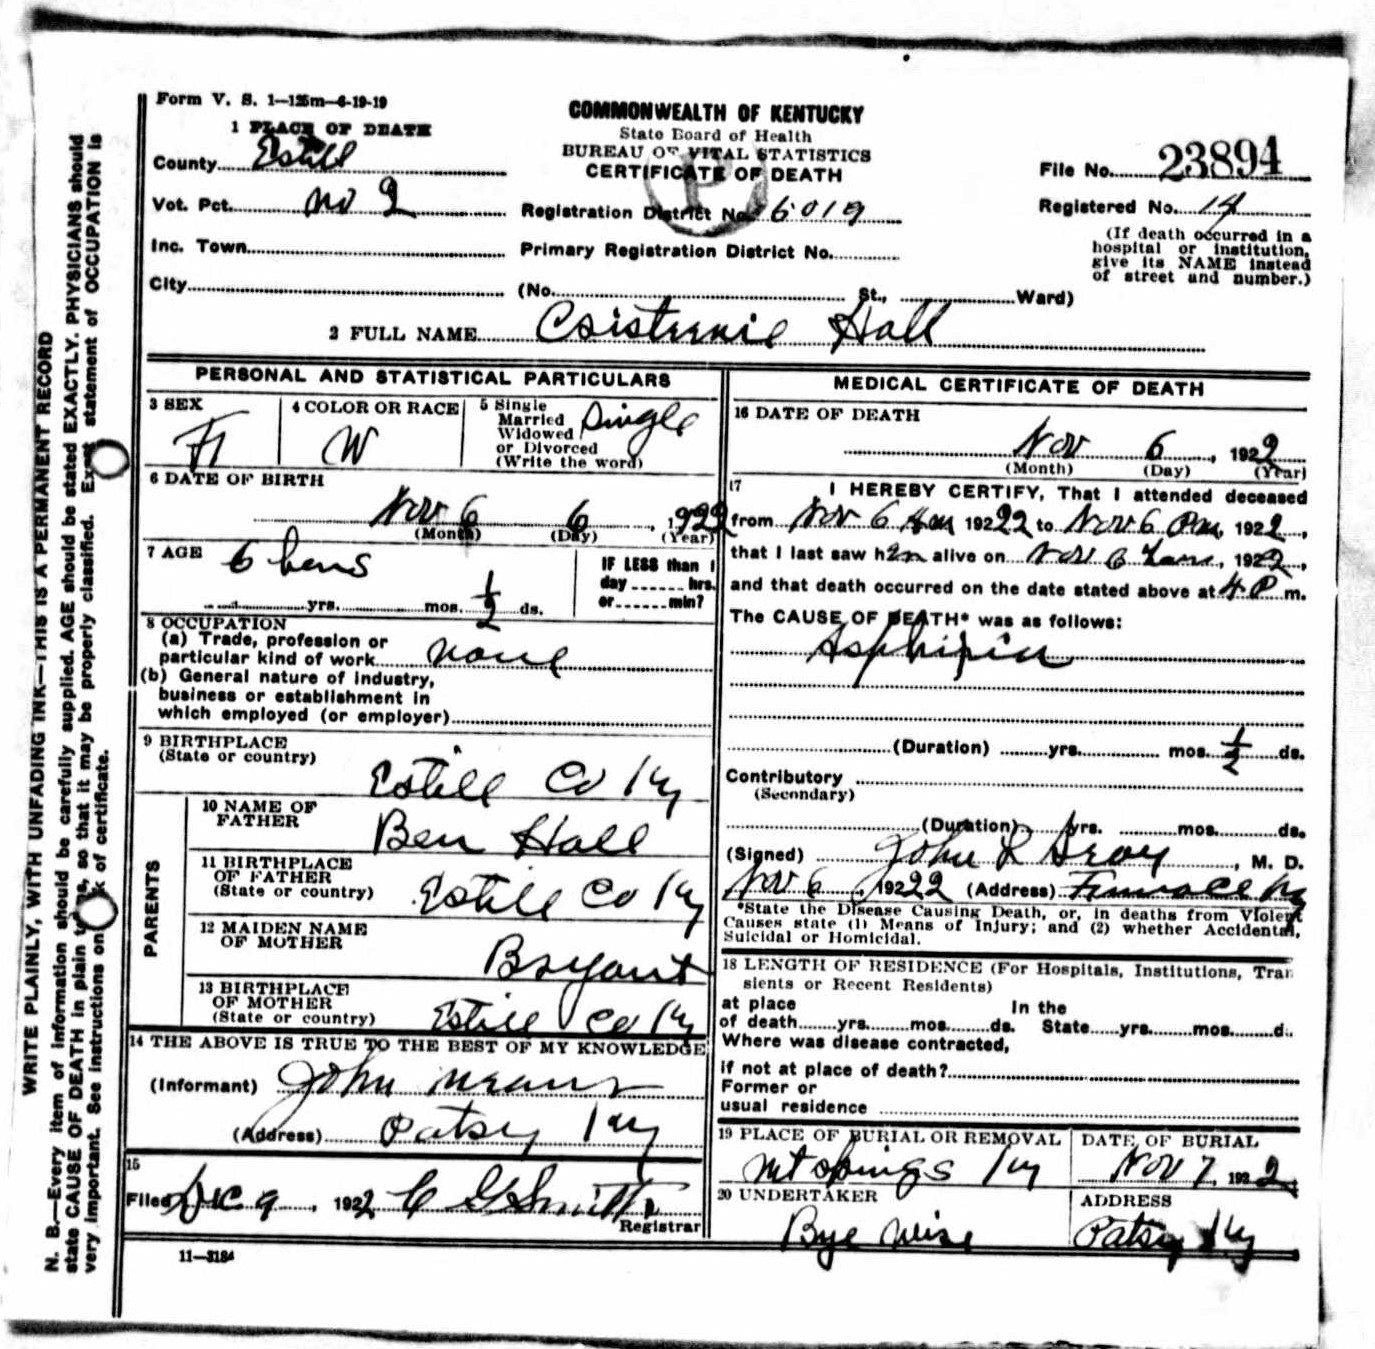 Form V. S. 1—125m—6-19-19
1 PLACE OF DEATH
County Estill
Vot. Pct. No 2
Inc. Town
City
COMMONWEALTH OF KENTUCKY
State Board of Health
BUREAU OF VITAL STATISTICS
CERTIFICATE OF DEATH
Registration District No. 6019
Primary Registration District No.
(No. St., Ward)
File No. 23894
Registered No. 14
(If death occurred in a
hospital or institution,
give its NAME instead
of street and number.)
2 FULL NAME Hall
PERSONAL AND STATISTICAL PARTICULARS
3 SEX F
4 COLOR OR RACE W
5 Single
Married
Widowed
or Divorced
(Write the word)
Single
6 DATE OF BIRTH
Nov 6 6, 1922
(Month) (Day) (Year)
7 AGE 6 hours
yrs. mos. 1/2 ds.
IF LESS than 1
day hrs.
or min?
8 OCCUPATION
(a) Trade, profession or
particular kind of work none
(b) General nature of industry,
business or establishment in
which employed (or employer)
9 BIRTHPLACE
(State or country)
Estill Co Ky
PARENTS
10 NAME OF
FATHER
Ben Hall
11 BIRTHPLACE
OF FATHER
(State or country)
Estill Co Ky
12 MAIDEN NAME
OF MOTHER
Bryant
13 BIRTHPLACE
OF MOTHER
(State or country)
Estill Co Ky
14 THE ABOVE IS TRUE TO THE BEST OF MY KNOWLEDGE
(Informant) John
(Address) Patsy Ky
15
Filed Dec 9, 1922 C G Smith
Registrar
11—3184
MEDICAL CERTIFICATE OF DEATH
16 DATE OF DEATH
Nov 6, 1922
(Month) (Day) (Year)
17 I HEREBY CERTIFY, That I attended deceased
from Nov 6 am 19222 to Nov 6 Pm, 1922,
that I last saw h alive on Nov 6, 1922,
and that death occurred on the date stated above at 4 P m.
The CAUSE OF DEATH* was as follows:
Asphixia
(Duration) yrs. mos. 1/2 ds.
Contributory
(Secondary)
(Duration) yrs. mos. ds.
(Signed) John R Gray, M. D.
Nov 6, 19222 (Address) Furnace Ky
*State the Disease Causing Death, or, in deaths from Violent
Causes state (1) Means of Injury; and (2) whether Accidental,
Suicidal or Homicidal.
18 LENGTH OF RESIDENCE (For Hospitals, Institutions, Tran
sients or Recent Residents)
at place In the
of death yrs. mos. ds. State yrs. mos. d.
Where was disease contracted,
if not at place of death?
Former or
usual residence
19 PLACE OF BURIAL OR REMOVAL
Mt Springs Ky
DATE OF BURIAL
Nov 7, 1922
20 UNDERTAKER
Bye Wise
ADDRESS
Patsy Ky
WRITE PLAINLY, WITH UNFADING INK—THIS IS A PERMANENT RECORD
N. B.—Every item of information should be carefully supplied. AGE should be stated EXACTLY. PHYSICIANS should
state CAUSE OF DEATH in plain so that it may be properly classified. Exact statement of OCCUPATION is
very important. See instructions on of certificate.